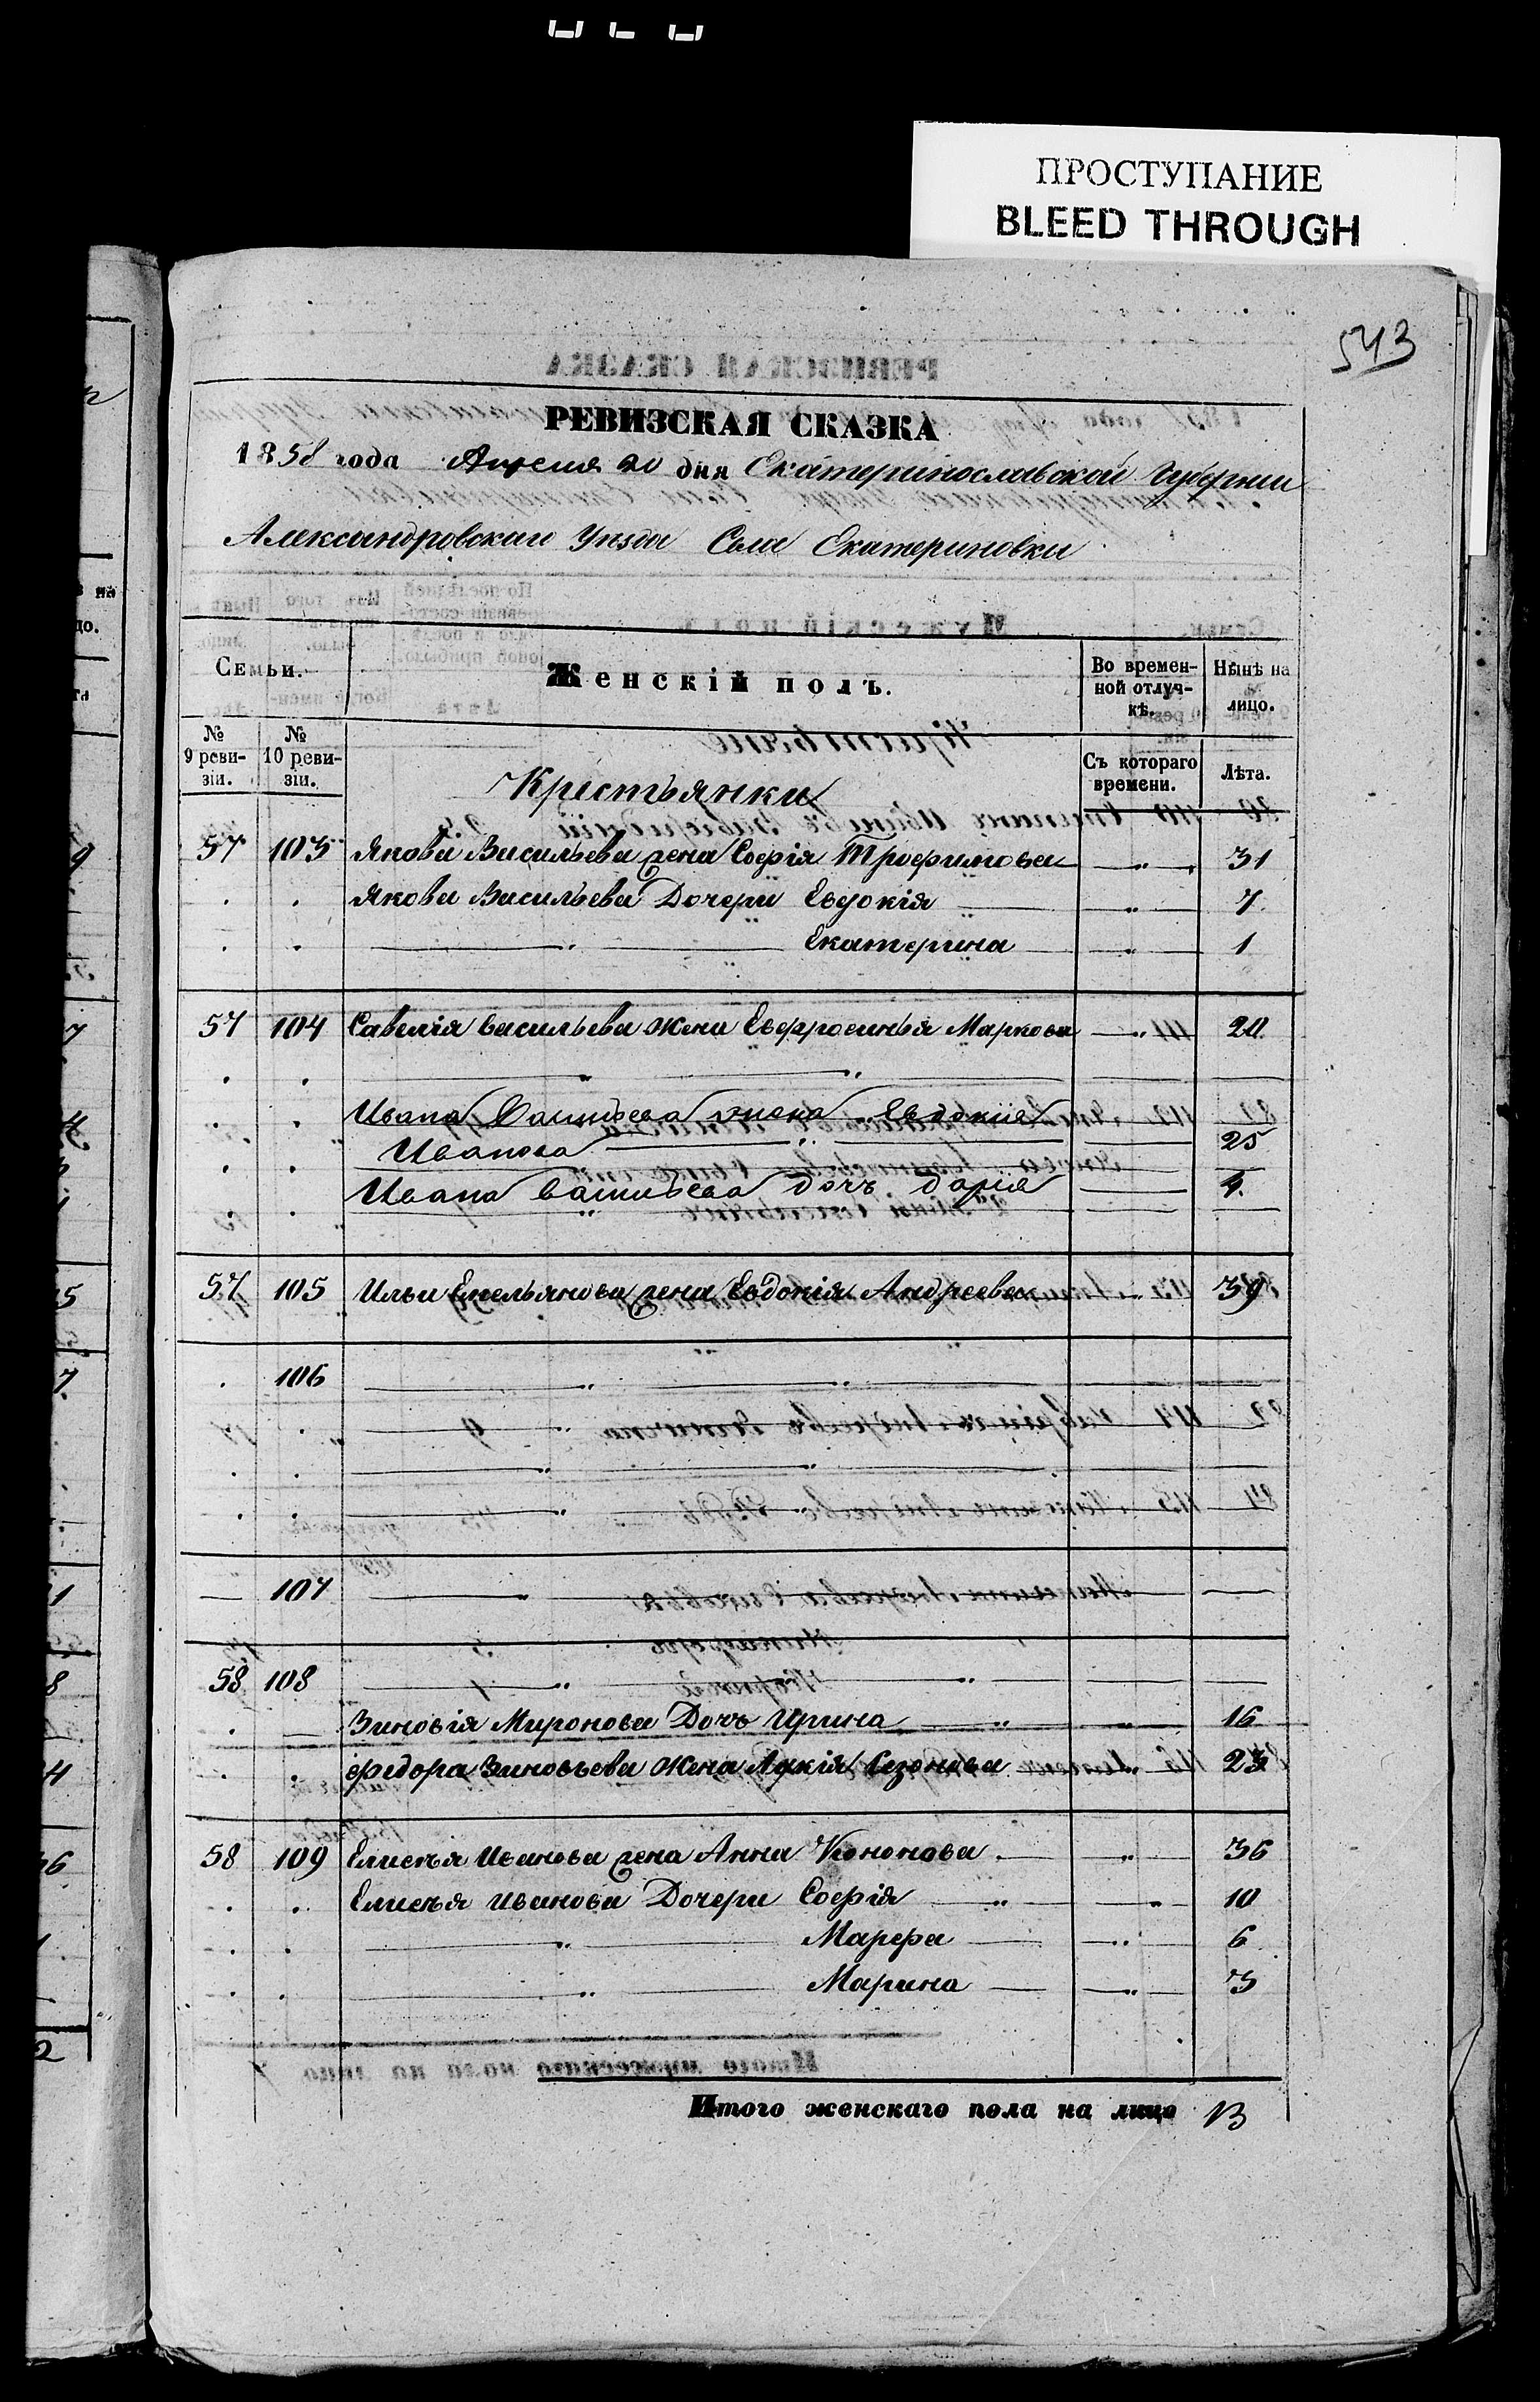 ПРОСТУПАНИЕ
BLEED THROUGH
543
РЕВИЗСКАЯ СКАЗКА
1858 года Апреля 20 дня Екатеринославской Губернии
Александровскаго Уѣзда Села Екатериновки
Семьи. Женскій полъ. Во времен-ной отлуч-кѣ. Нынѣ на лицо.
№ 9 реви-зіи. № 10 реви-зіи. Съ котораго времени. Лѣта.
Крестьянки
57 103 Якова Васильева жена Софія Трофимова " 31
Якова Васильева Дочери Евдокія " 7
" Екатерина " 1
57 104 Савелія Васильева жена Евфросинья Маркова " 20
Ивана Васильева жена Евдокия
Иванова " 25
Ивана Васильева дочь Дария 4.
57 105 Ильи Емельянова жена Евдокія Андреева " 39
106 " "
" "
107 "
58 108 " "
Зиновія Миронова Дочь Ирина " " 16
Федора Зиновьева жена Лукія Сезонова " 23
58 109 Елисѣя Иванова жена Анна Кононова " 36
Елисѣя Иванова Дочери Софія " " 10
" Марфа " 6
" Марина " 3
Итого женскаго пола на лицо 13